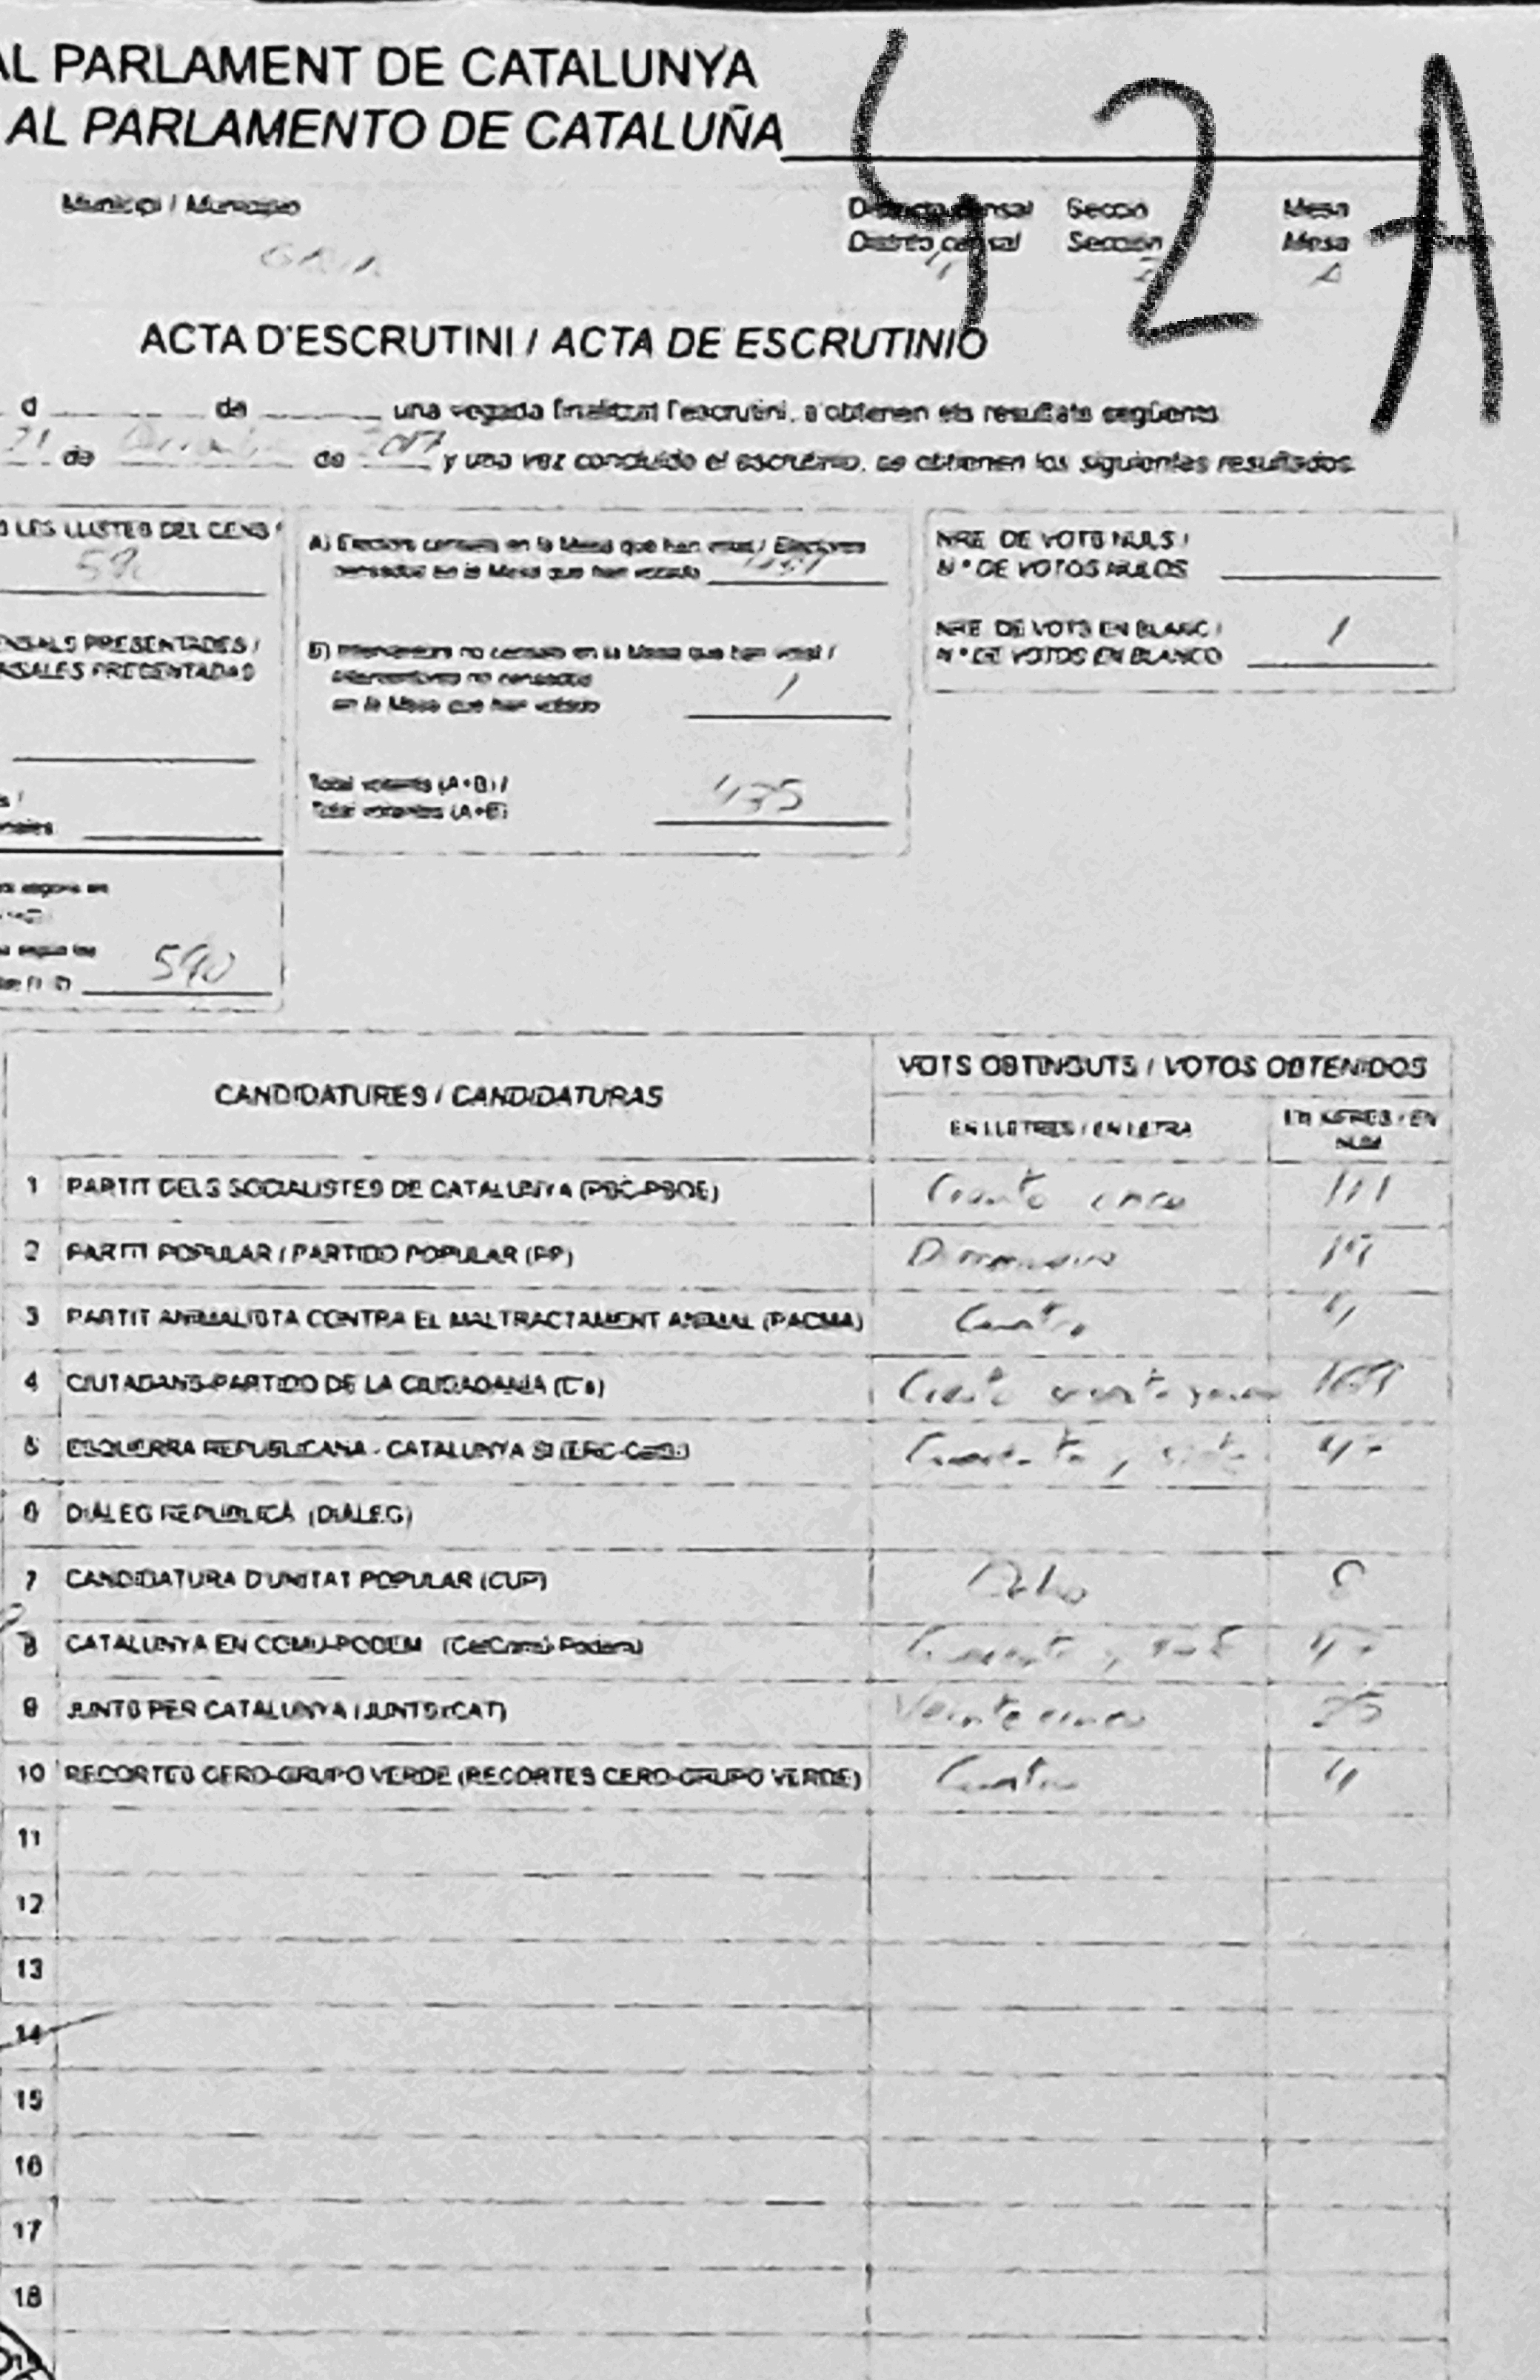 AL PARLAMENT DE CATALUNYA
AL PARLAMENTO DE CATALUÑA
42A
Municipi / Municipio
Districte censal Secció Mesa
Distrito censal Sección Mesa
4 2 A
ACTA D'ESCRUTINI / ACTA DE ESCRUTINIO
d de una vegada finalitzat l'escrutini, s'obtenen els resultats següents
21 de de 2017 y una vez concluido el escrutinio, se obtienen los siguientes resultados
LES LLISTES DEL CENS /
A) Electors censats en la Mesa que han votat / Electores
censados en la Mesa que han votado
NRE. DE VOTS NULS /
N.º DE VOTOS NULOS
PRESENTADES /
PRESENTADAS
B) Interventors no censats en la Mesa que han votat /
Interventores no censados
en la Mesa que han votado 1
NRE. DE VOTS EN BLANC /
N.º DE VOTOS EN BLANCO 1
Total votants (A+B) /
Total votantes (A+B) 435
590
CANDIDATURES / CANDIDATURAS
VOTS OBTINGUTS / VOTOS OBTENIDOS
EN LLETRES / EN LETRA
EN XIFRES / EN
NÚM
1 PARTIT DELS SOCIALISTES DE CATALUNYA (PSC-PSOE) Ciento once 111
2 PARTIT POPULAR / PARTIDO POPULAR (PP) 19
3 PARTIT ANIMALISTA CONTRA EL MALTRACTAMENT ANIMAL (PACMA) Cuatro 4
4 CIUTADANS-PARTIDO DE LA CIUDADANÍA (C's) Ciento sesenta y nueve 169
5 ESQUERRA REPUBLICANA - CATALUNYA SÍ (ERC-CatSí) Cuarenta y siete 47
6 DIÀLEG REPUBLICÀ (DIÀLEG)
7 CANDIDATURA D'UNITAT POPULAR (CUP) Ocho 8
8 CATALUNYA EN COMÚ-PODEM (CatComú-Podem) Cuarenta y siete 47
9 JUNTS PER CATALUNYA (JUNTSxCAT) Veinte cinco 25
10 RECORTES CERO-GRUPO VERDE (RECORTES CERO-GRUPO VERDE) Cuatro 4
11
12
13
14
15
16
17
18